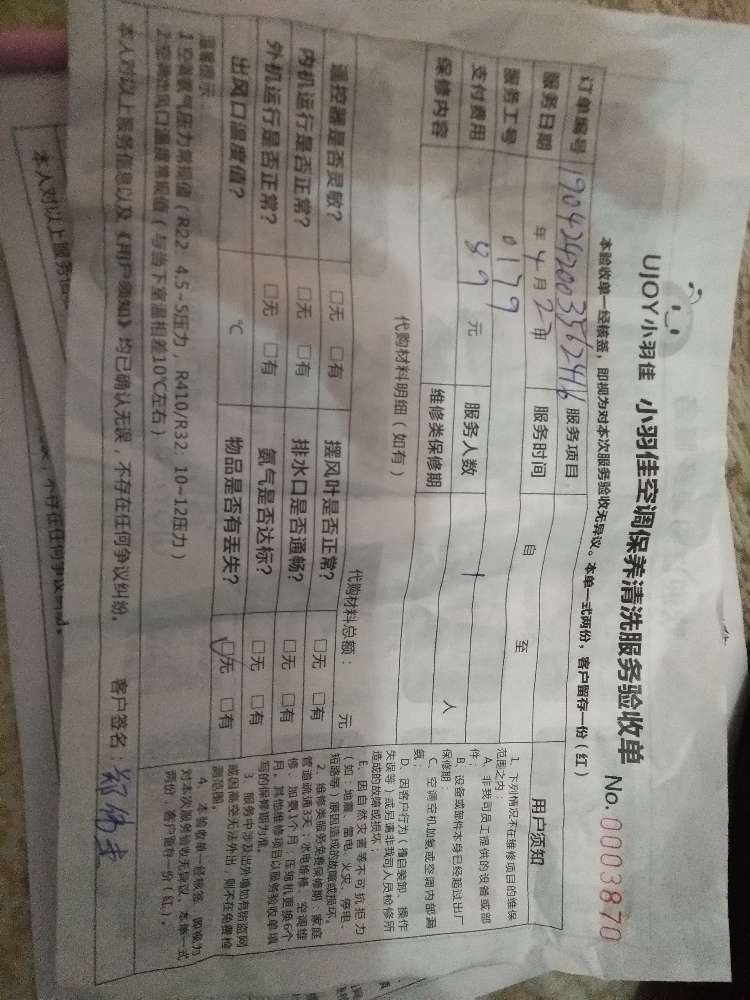 UJOY小羽佳 小羽佳空调保养清洗服务验收单 No. 0003870
本验收单一经核签，即视为对本次服务验收无异议。本单一式两份，客户留存一份（红）
订单编号 服务项目
服务日期 年 4 月 27 日 服务时间 自 至
服务工号 0179
支付费用 89 元 服务人数 1 人
保修内容 维修类保修期
代购材料明细（如有） 代购材料总额： 元
遥控器是否灵敏？ □无 □有 摆风叶是否正常？ □无 □有
内机运行是否正常？ □无 □有 排水口是否通畅？ □无 □有
外机运行是否正常？ □无 □有 氨气是否达标？ □无 □有
出风口温度值？ ℃ 物品是否有丢失？ □无 □有
温馨提示
1.空调氨气压力常规值（R22：4.5~5压力，R410/R32：10~12压力）
2.空调出风口温度常规值（与当下室温相差10℃左右）
本人对以上服务信息以及《用户须知》均已确认无误，不存在任何争议纠纷。 客户签名：
用户须知
1、下列情况不在维修项目的维保
范围之内：
A、非我司员工提供的设备或部
件；
B、设备或部件本身已经超过出厂
保修期；
C、空调空机加氨或空调内部漏
氨；
D、因客户行为（擅自装卸、操作
失误等）或另请非我司人员检修所
造成的故障或损坏；
E、因自然灾害等不可抗拒力
（如：地震、雷电、火灾、停电、
短路等）原因造成的故障或损坏。
2、维修类服务免费保修期：家庭
管道疏通3天；水电维修、空调维
修、加氨1个月；压缩机更换6个
月。其他维修项目以服务验收单填
写的保修期为准。
3、服务中涉及出外墙如有防盗网
或因高空无法外出，则不在免费检
测范围。
4、本验收单一经核签，即视为
对本次服务验收无异议。本单一式
两份，客户留存一份（红）。
本人对以上服务信
不存在任何争议纠纷。